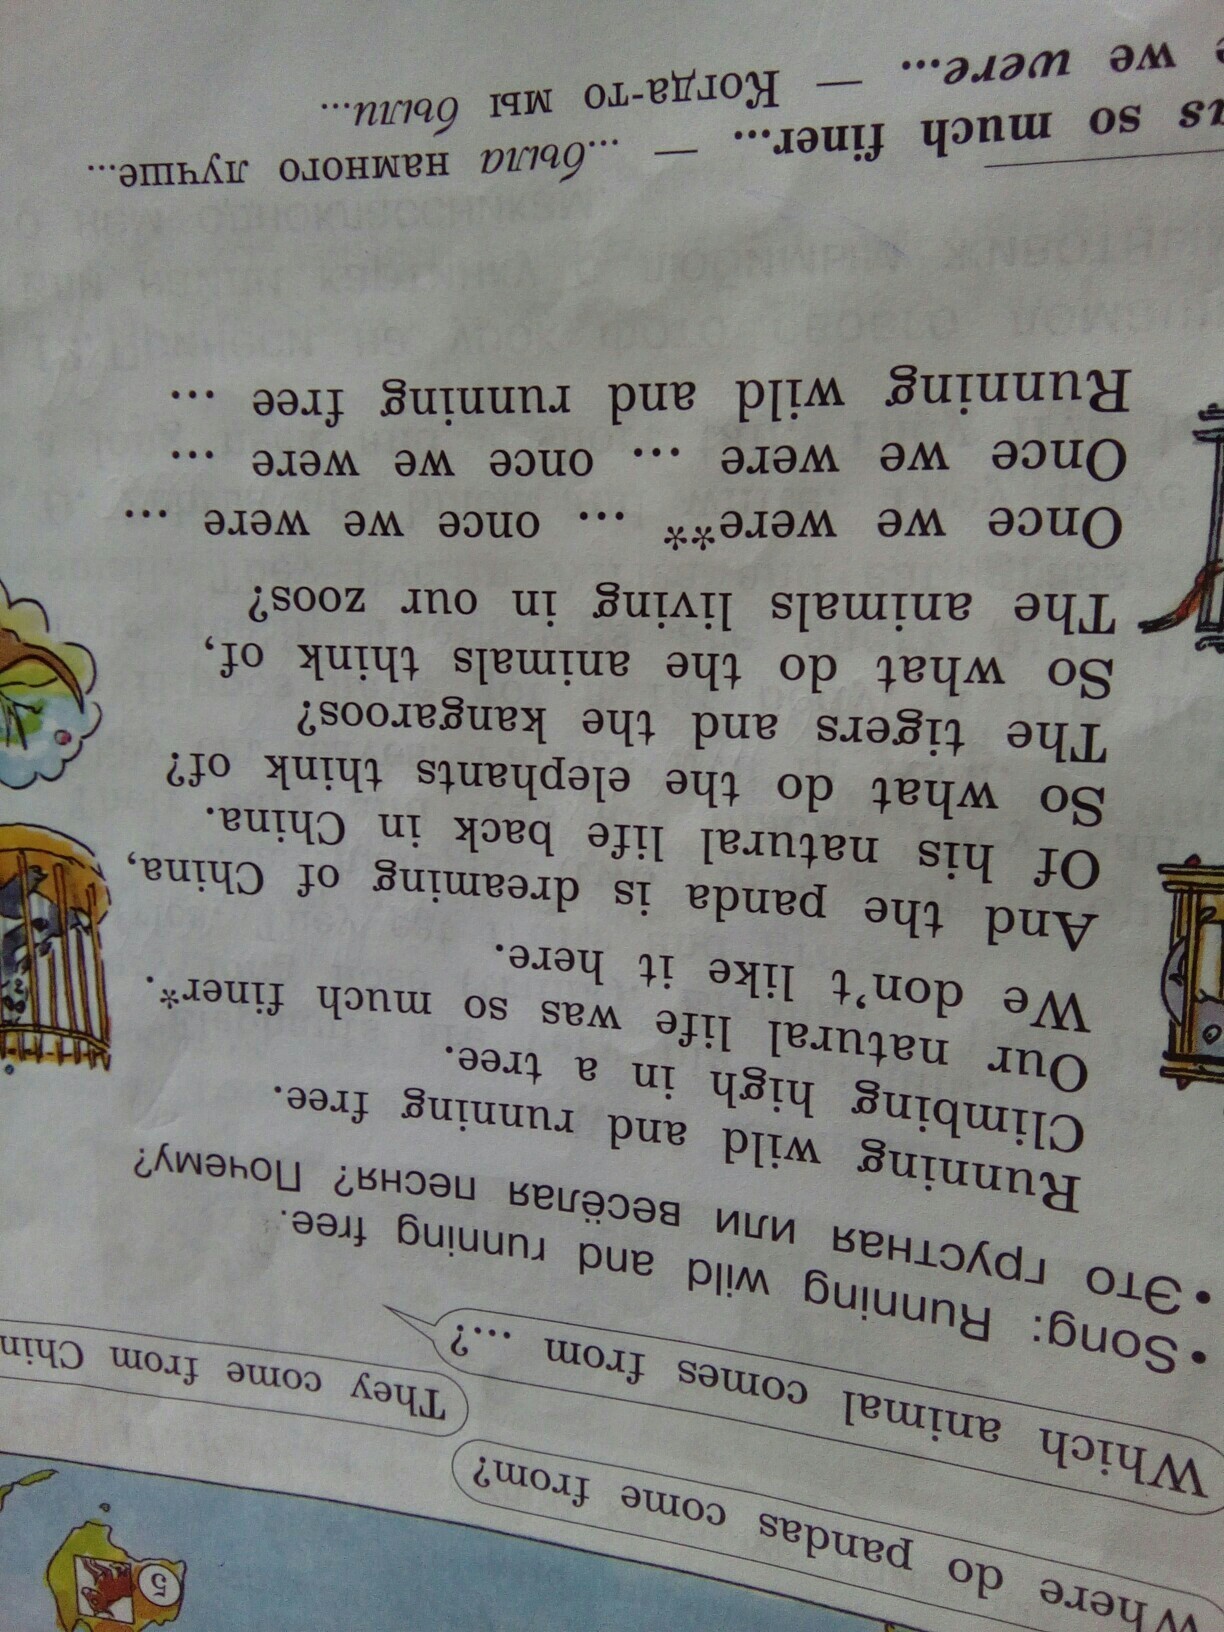 5
Where do pandas come from?
They come from Chin
Which animal comes from ...?
• Song: Running wild and running free.
• Это грустная или весёлая песня? Почему?
Running wild and running free.
Climbing high in a tree.
Our natural life was so much finer*.
We don't like it here.
And the panda is dreaming of China,
Of his natural life back in China.
So what do the elephants think of?
The tigers and the kangaroos?
So what do the animals think of,
The animals living in our zoos?
Once we were** ... once we were ...
Once we were ... once we were ...
Running wild and running free ...
so much finer... — ...была намного лучше...
we were... — Когда-то мы были...